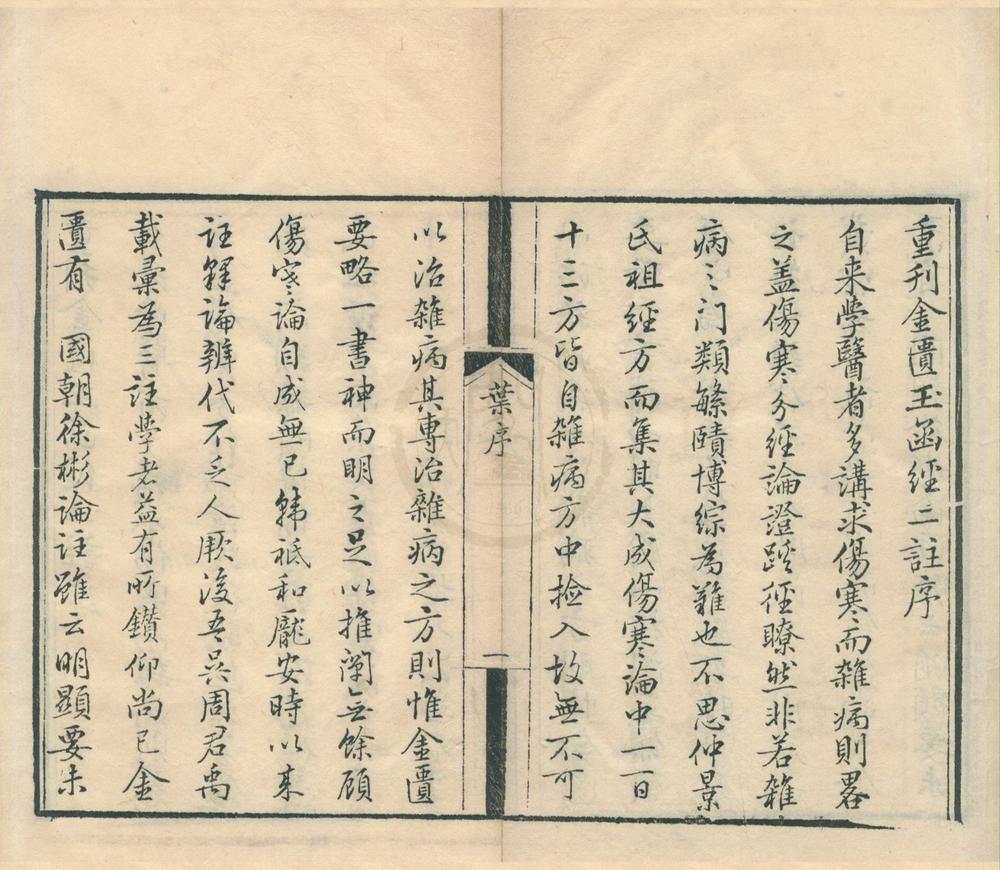 重刊金匱玉函經二註序
自来學醫者多講求傷寒而雜病則畧
之盖傷寒分經論證蹊徑瞭然非若雜
病之门類緐賾博綜為難也不思仲景
氏祖經方而集其大成傷寒論中一百
十三方皆自雜病方中捡入故無不可
葉序
一
以治雜病其專治雜病之方則惟金匱
要略一書神而明之足以推闡無餘顧
傷寒論自成無已韩祗和龐安時以来
註釋論辨代不乏人厥後吾吴周君禹
載彙為三註學者益有所鑽仰尚已金
匱有 國朝徐彬論註雖云明顯要未